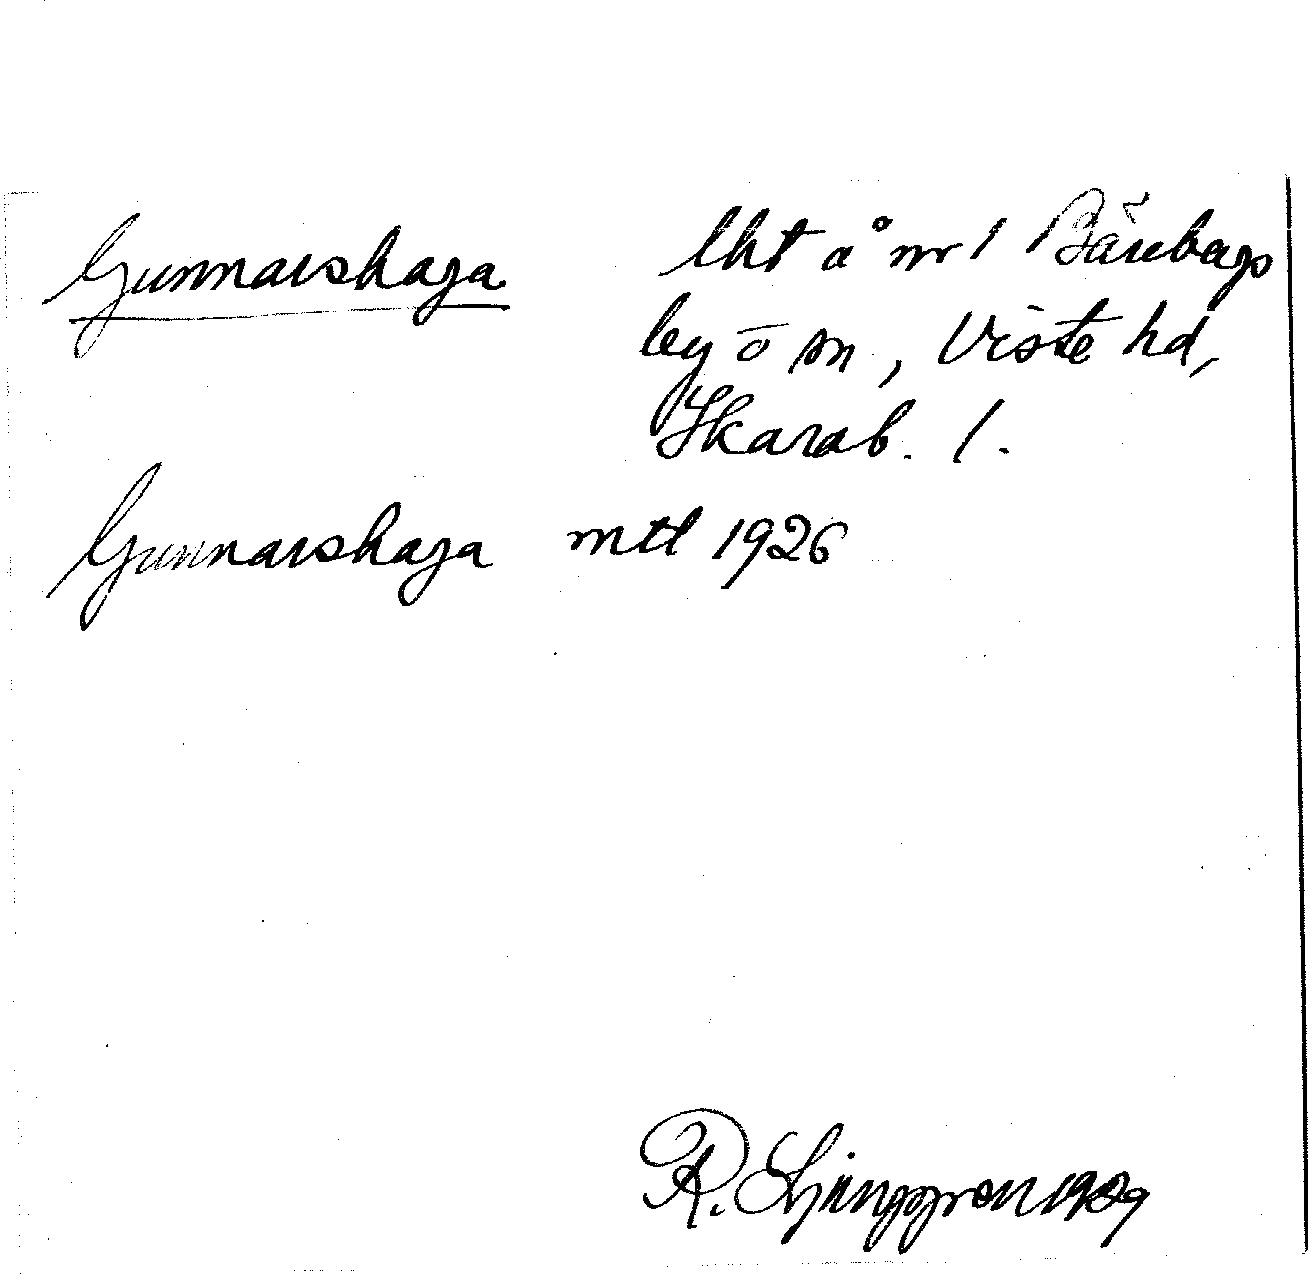 Gunnarshaga lht å nr 1 Bärebergs
by o sn, Viste hd,
Skarab. l.
Gunnarshaga mtl 1926
R. Ljunggren 1929